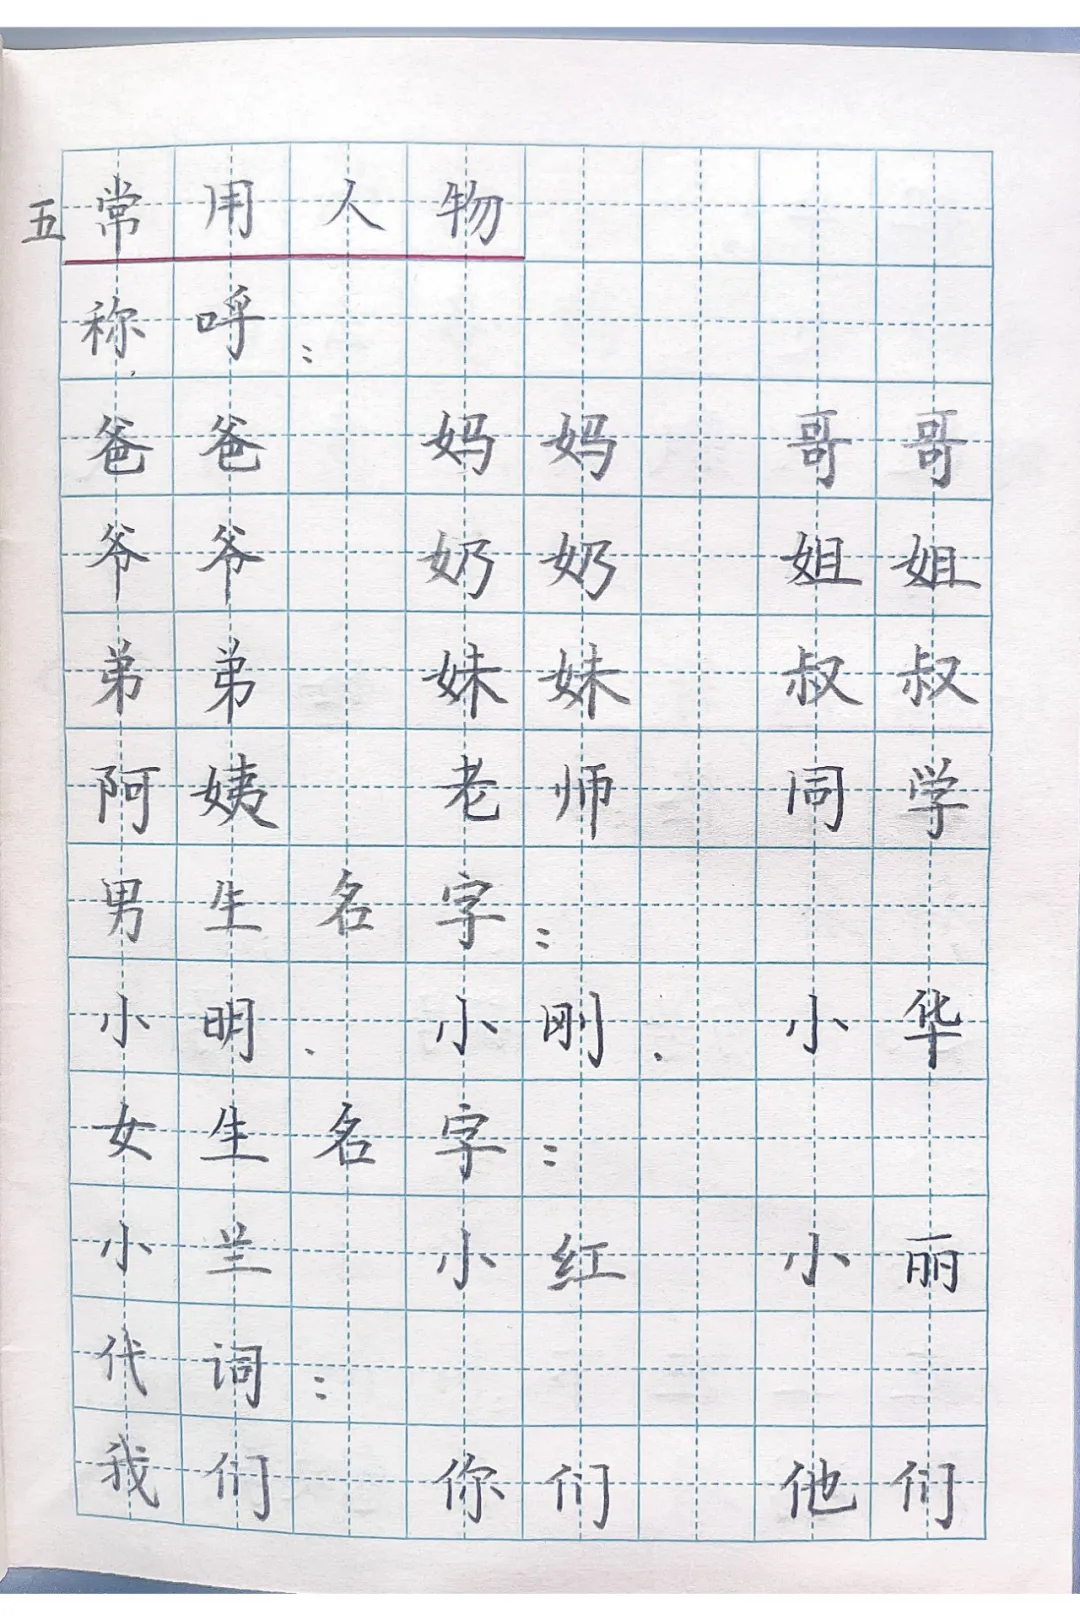 五常用人物
称呼：
爸爸 妈妈 哥哥
爷爷 奶奶 姐姐
弟弟 妹妹 叔叔
阿姨 老师 同学
男生名字：
小明、小刚、小华
女生名字：
小兰 小红 小丽
代词：
我们 你们 他们